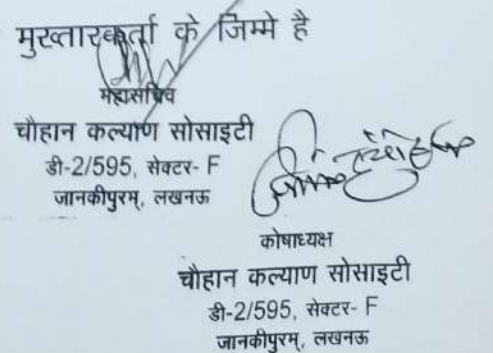 मुख्तारकर्ता के जिम्मे है
महासचिव
चौहान कल्याण सोसाइटी
डी-2/595, सेक्टर- F
जानकीपुरम्, लखनऊ
कोषाध्यक्ष
चौहान कल्याण सोसाइटी
डी-2/595, सेक्टर- F
जानकीपुरम्, लखनऊ